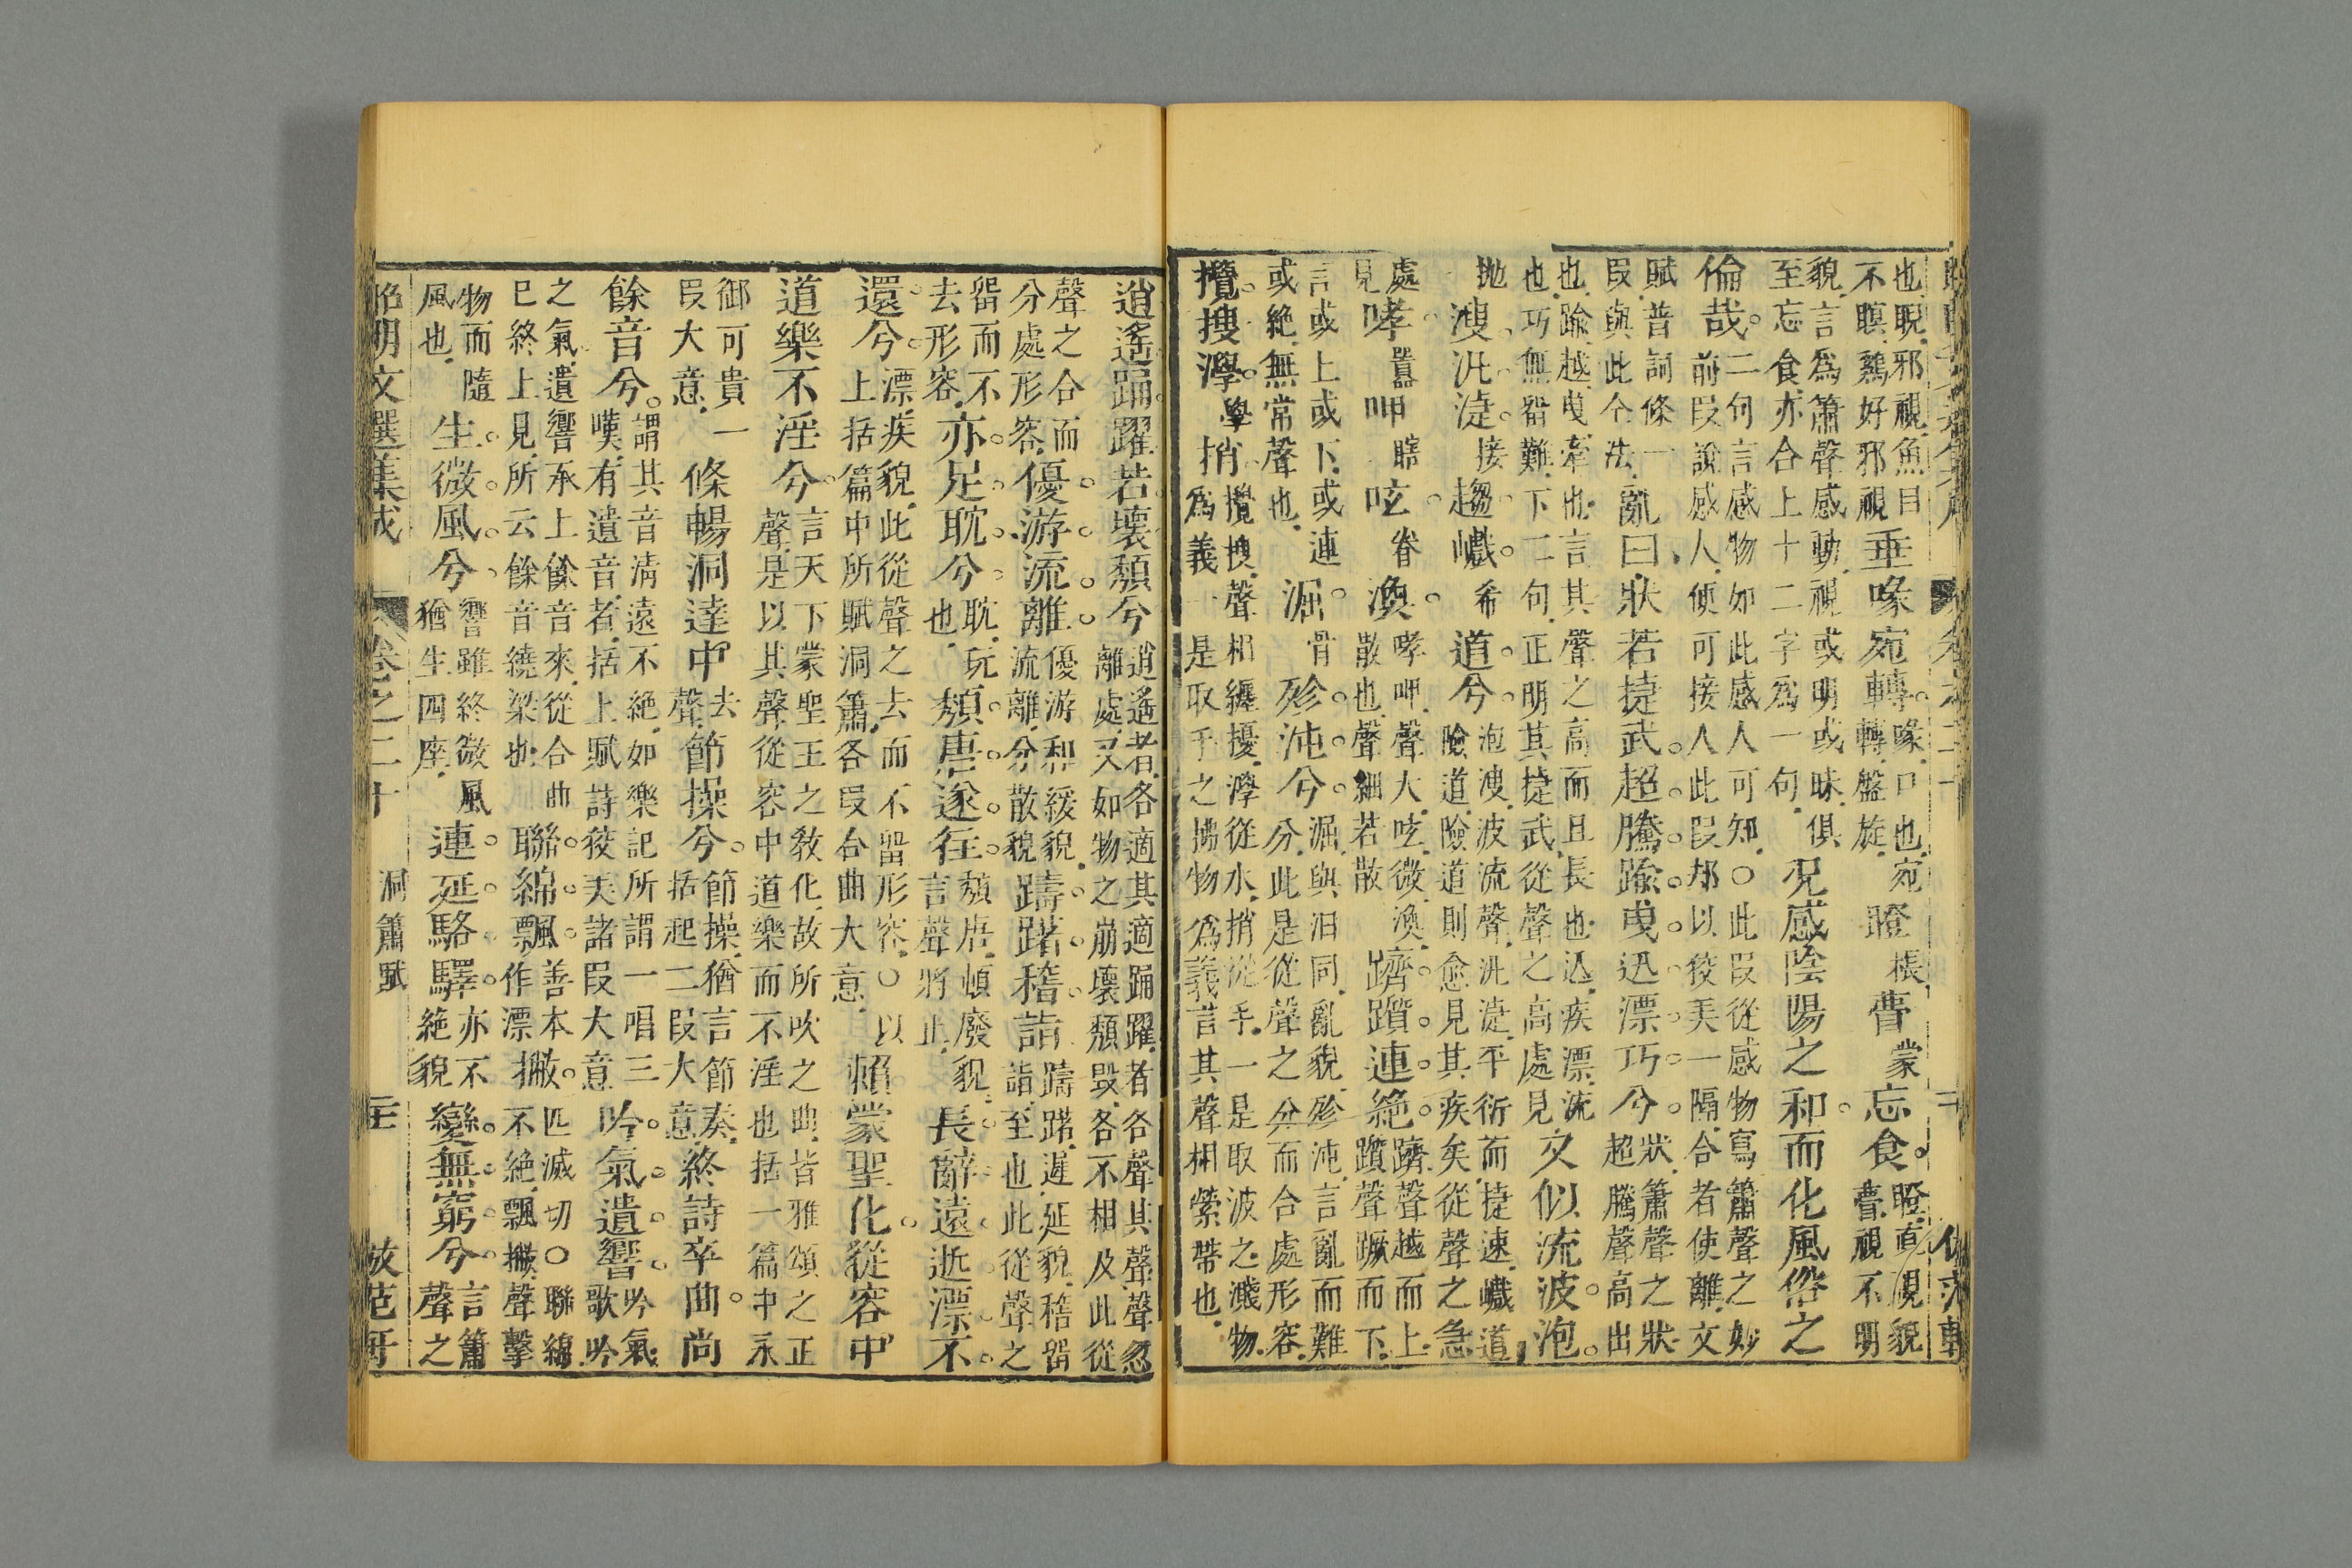 也睨邪視魚目
不瞑鷄好邪視
垂喙宛轉。
喙口也宛
轉盤旋
瞪棖瞢蒙忘食。
瞪直視貌
瞢視不明
貌言爲簫聲感動視或明或昧俱
至忘食亦合上十二字爲一句
况感陰陽之和。而化風俗之
倫哉。
二句言感物如此感人可知○此段從感物寫簫聲之妙
前段說感人便可接人此段却以筱美一隔合者使離文
賦普詞條一
段與此仝法
亂曰狀若捷武。超騰踰曳。迅漂巧兮。
狀簫聲之狀
超騰聲高出
也踰越曳牽也言其聲之高而且長也迅疾漂流
也巧無留難下二句正明其捷武從聲之高處見
又似流波。泡
抛溲泛㴔接趨巇希道兮。
泡溲波流聲泛㴔平衍而捷速巇道
險道險道則愈見其疾矣從聲之急
處
見
哮嚻呷瞎呟眷渙。
哮呷聲大呟微渙
散也聲細若散
躋躓連絶。
躋聲越而上
躓聲蹶而下
言或上或下或連
或絶無常聲也
淈骨殄沌兮。
淈與汩同亂貌殄沌言亂而難
分此是從聲之分而合處形容
攪搜㶅學捎
攪搜聲相纏擾㶅從水捎從手一是取波之濺物
爲義一是取手之拂物爲義言其聲相縈帶也
逍遙踊躍若壞頽兮
逍遙者各適其適踊躍者各聲其聲聲忽
離處又如物之崩壞頽毀各不相及此從
聲之合而
分處形容
優游流離。
優游和緩貌
流離分散貌
躊躇稽詣
躊躇遲延貌稽留
詣至也此從聲之
留而不
去形容
亦足耽兮
耽玩
也
頽唐遂往。
頽唐頓廢貌
言聲將止
長辭遠逝漂不
還兮。
漂疾貌此從聲之去而不留形容○以
上括篇中所賦洞簫各段合曲大意
賴蒙聖化。從容中
道樂不淫兮。
言天下蒙聖王之敎化故所吹之曲皆雅頌之正
聲是以其聲從容中道樂而不淫也括一篇中永
御可貴一
段大意
條暢洞達中去聲節操兮。
節操猶言節奏
括起二段大意
終詩卒曲。尚
餘音兮。
謂其音淸遠不絶如樂記所謂一唱三
嘆有遺音者括上賦詩筱美諸段大意
吟氣遺響。
吟氣
歌吟
之氣遺響承上餘音來從合曲
已終上見所云餘音繞梁也
聯綿飄
善本
作漂
撇
匹滅切○聯綿
不絶飄撇聲擊
物而隨
風也
生微風兮
響雖終微風
猶生四座
連延駱驛
亦不
絶貌
變無窮兮
言簫
聲之
昭明文選集成 卷之二十 洞簫賦